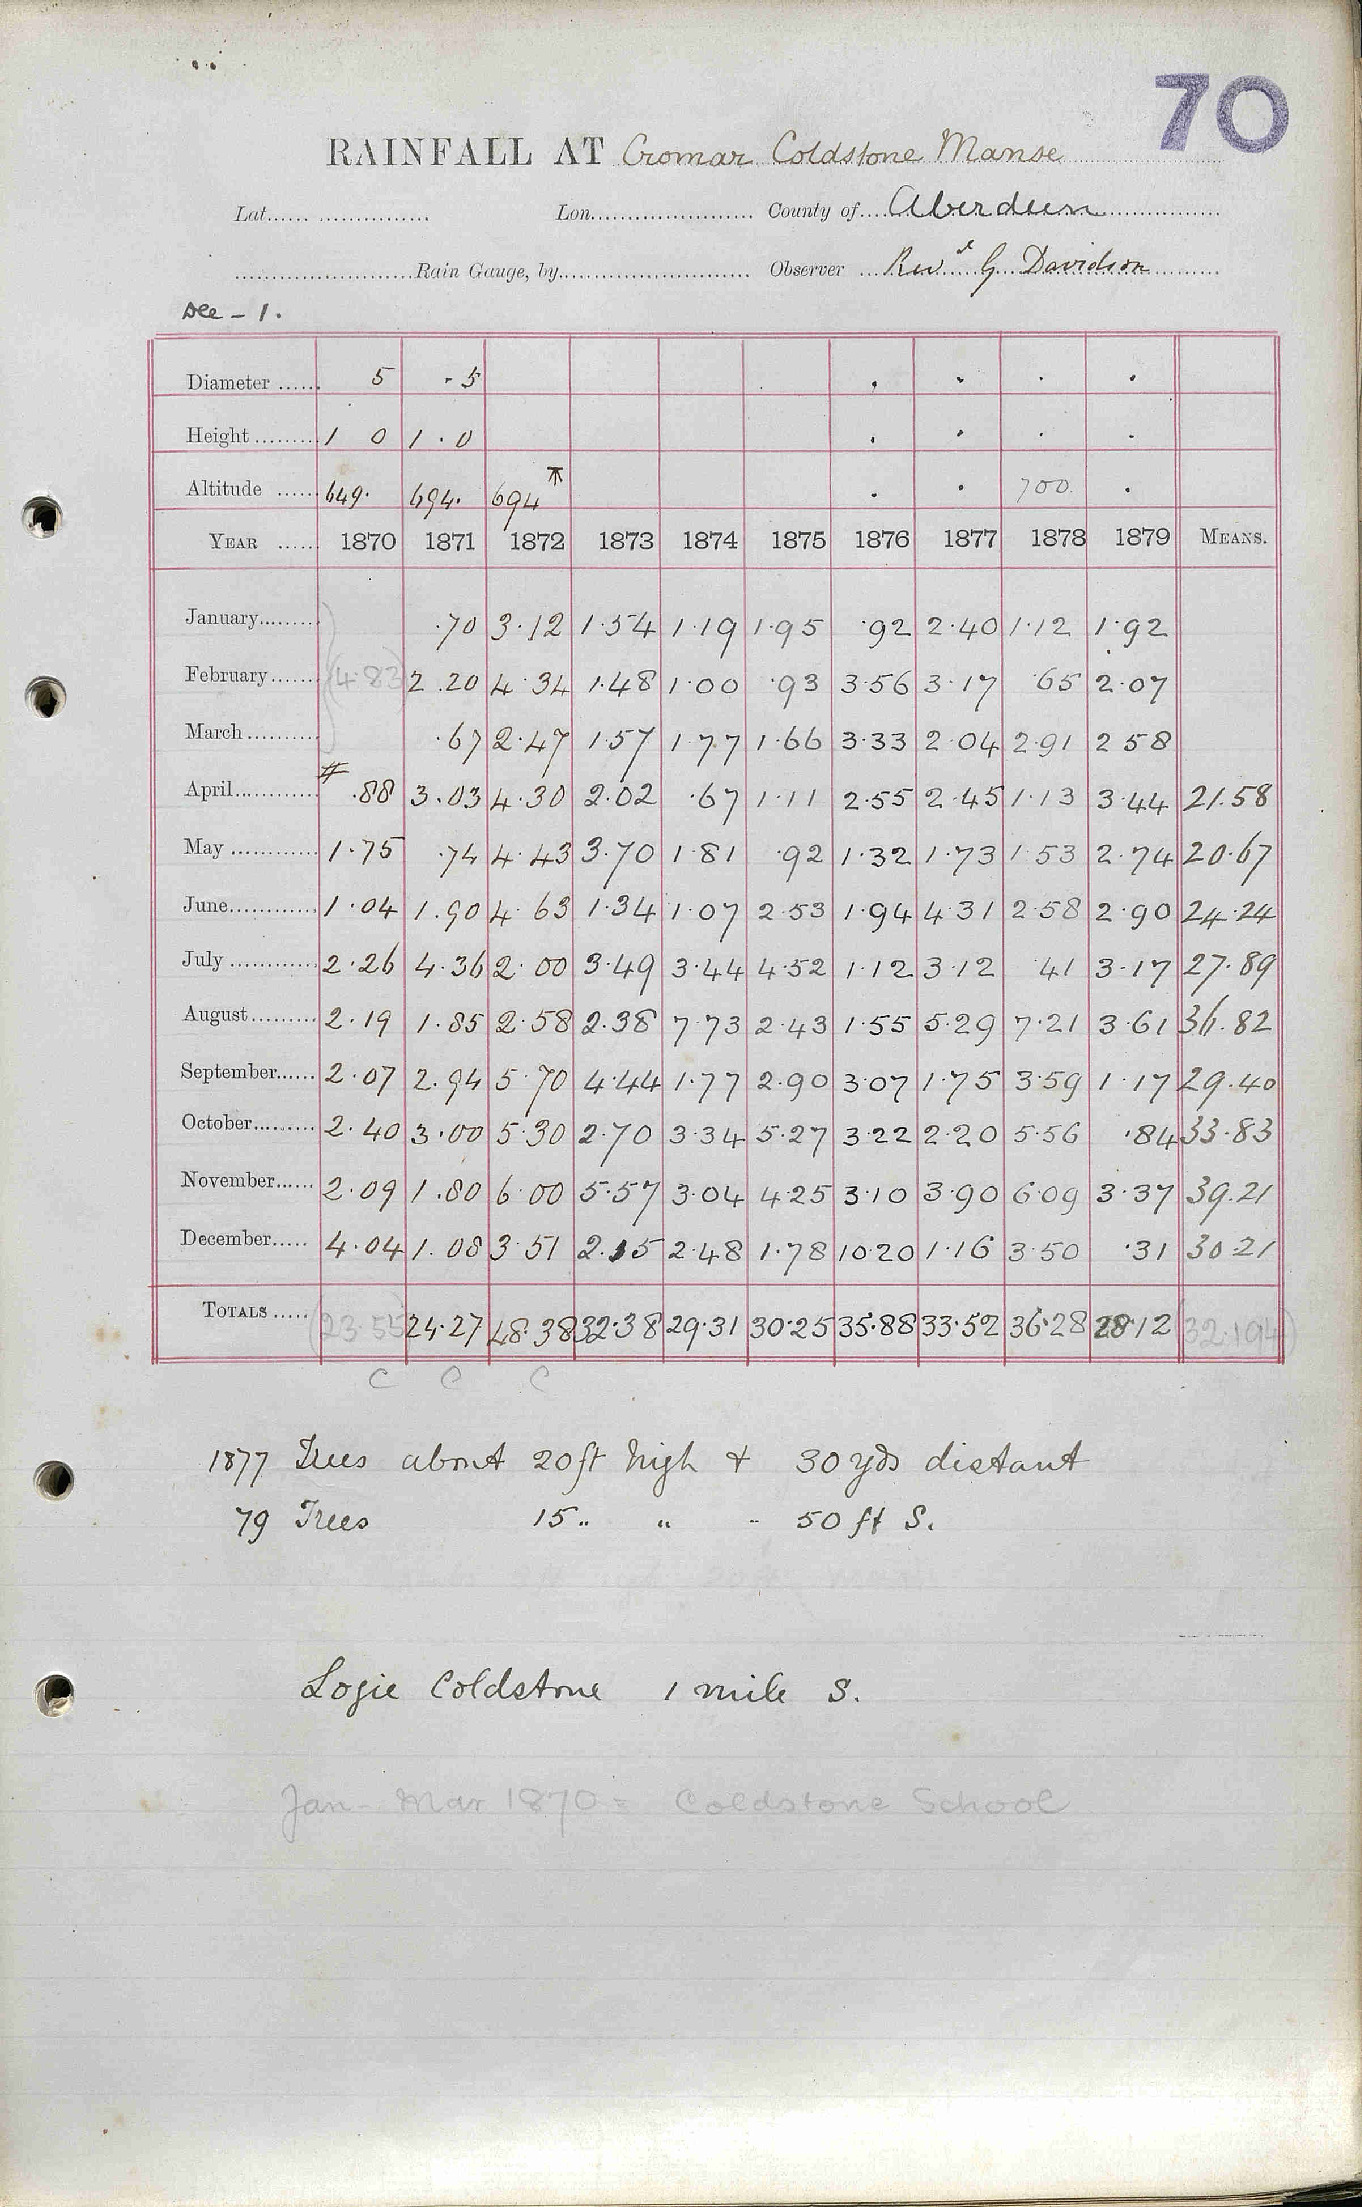 70
RAINFALL AT Cromar Coldstone Manse
Lat. Lon. County of Aberdeen
Rain Gauge, by Observer Rev.d G Davidson
Dee - 1.
Diameter 5 . 5 . . . .
Height 1 0 1 . 0 . . . .
Altitude 649. 694. 694 . . 700 .
YEAR 1870 1871 1872 1873 1874 1875 1876 1877 1878 1879 MEANS.
January .70 3.12 1.54 1.19 1.95 .92 2.40 1.12 1.92
February (4.83) 2.20 4.34 1.48 1.00 .93 3.56 3.17 65 2.07
March .67 2.47 1.57 1.77 1.66 3.33 2.04 2.91 2 58
April # .88 3.03 4.30 2.02 .67 1.11 2.55 2.45 1.13 3.44 21.58
May 1.75 .74 4.43 3.70 1.81 .92 1.32 1.73 1.53 2.74 20.67
June 1.04 1.90 4.63 1.34 1.07 2.53 1.94 4.31 2.58 2.90 24.24
July 2.26 4.36 2.00 3.49 3.44 4.52 1.12 3.12 41 3.17 27.89
August 2.19 1.85 2.58 2.38 7.73 2.43 1.55 5.29 7.21 3.61 36.82
September 2.07 2.94 5.70 4.44 1.77 2.90 3.07 1.75 3.59 1.17 29.40
October 2.40 3.00 5.30 2.70 3.34 5.27 3.22 2.20 5.56 .84 33.83
November 2.09 1.80 6.00 5.57 3.04 4.25 3.10 3.90 6.09 3.37 39.21
December 4.04 1.08 3.51 2.15 2.48 1.78 10.20 1.16 3.50 .31 30.21
TOTALS (23.55) 24.27 48.38 32.38 29.31 30.25 35.88 33.52 36.28 28.12 (32.194)
C C C
1877 Trees about 20 ft high & 30 yds distant
79 Trees 15 " " " 50 ft S.
Logie Coldstone 1 mile S.
Jan - Mar 1870 = Coldstone School